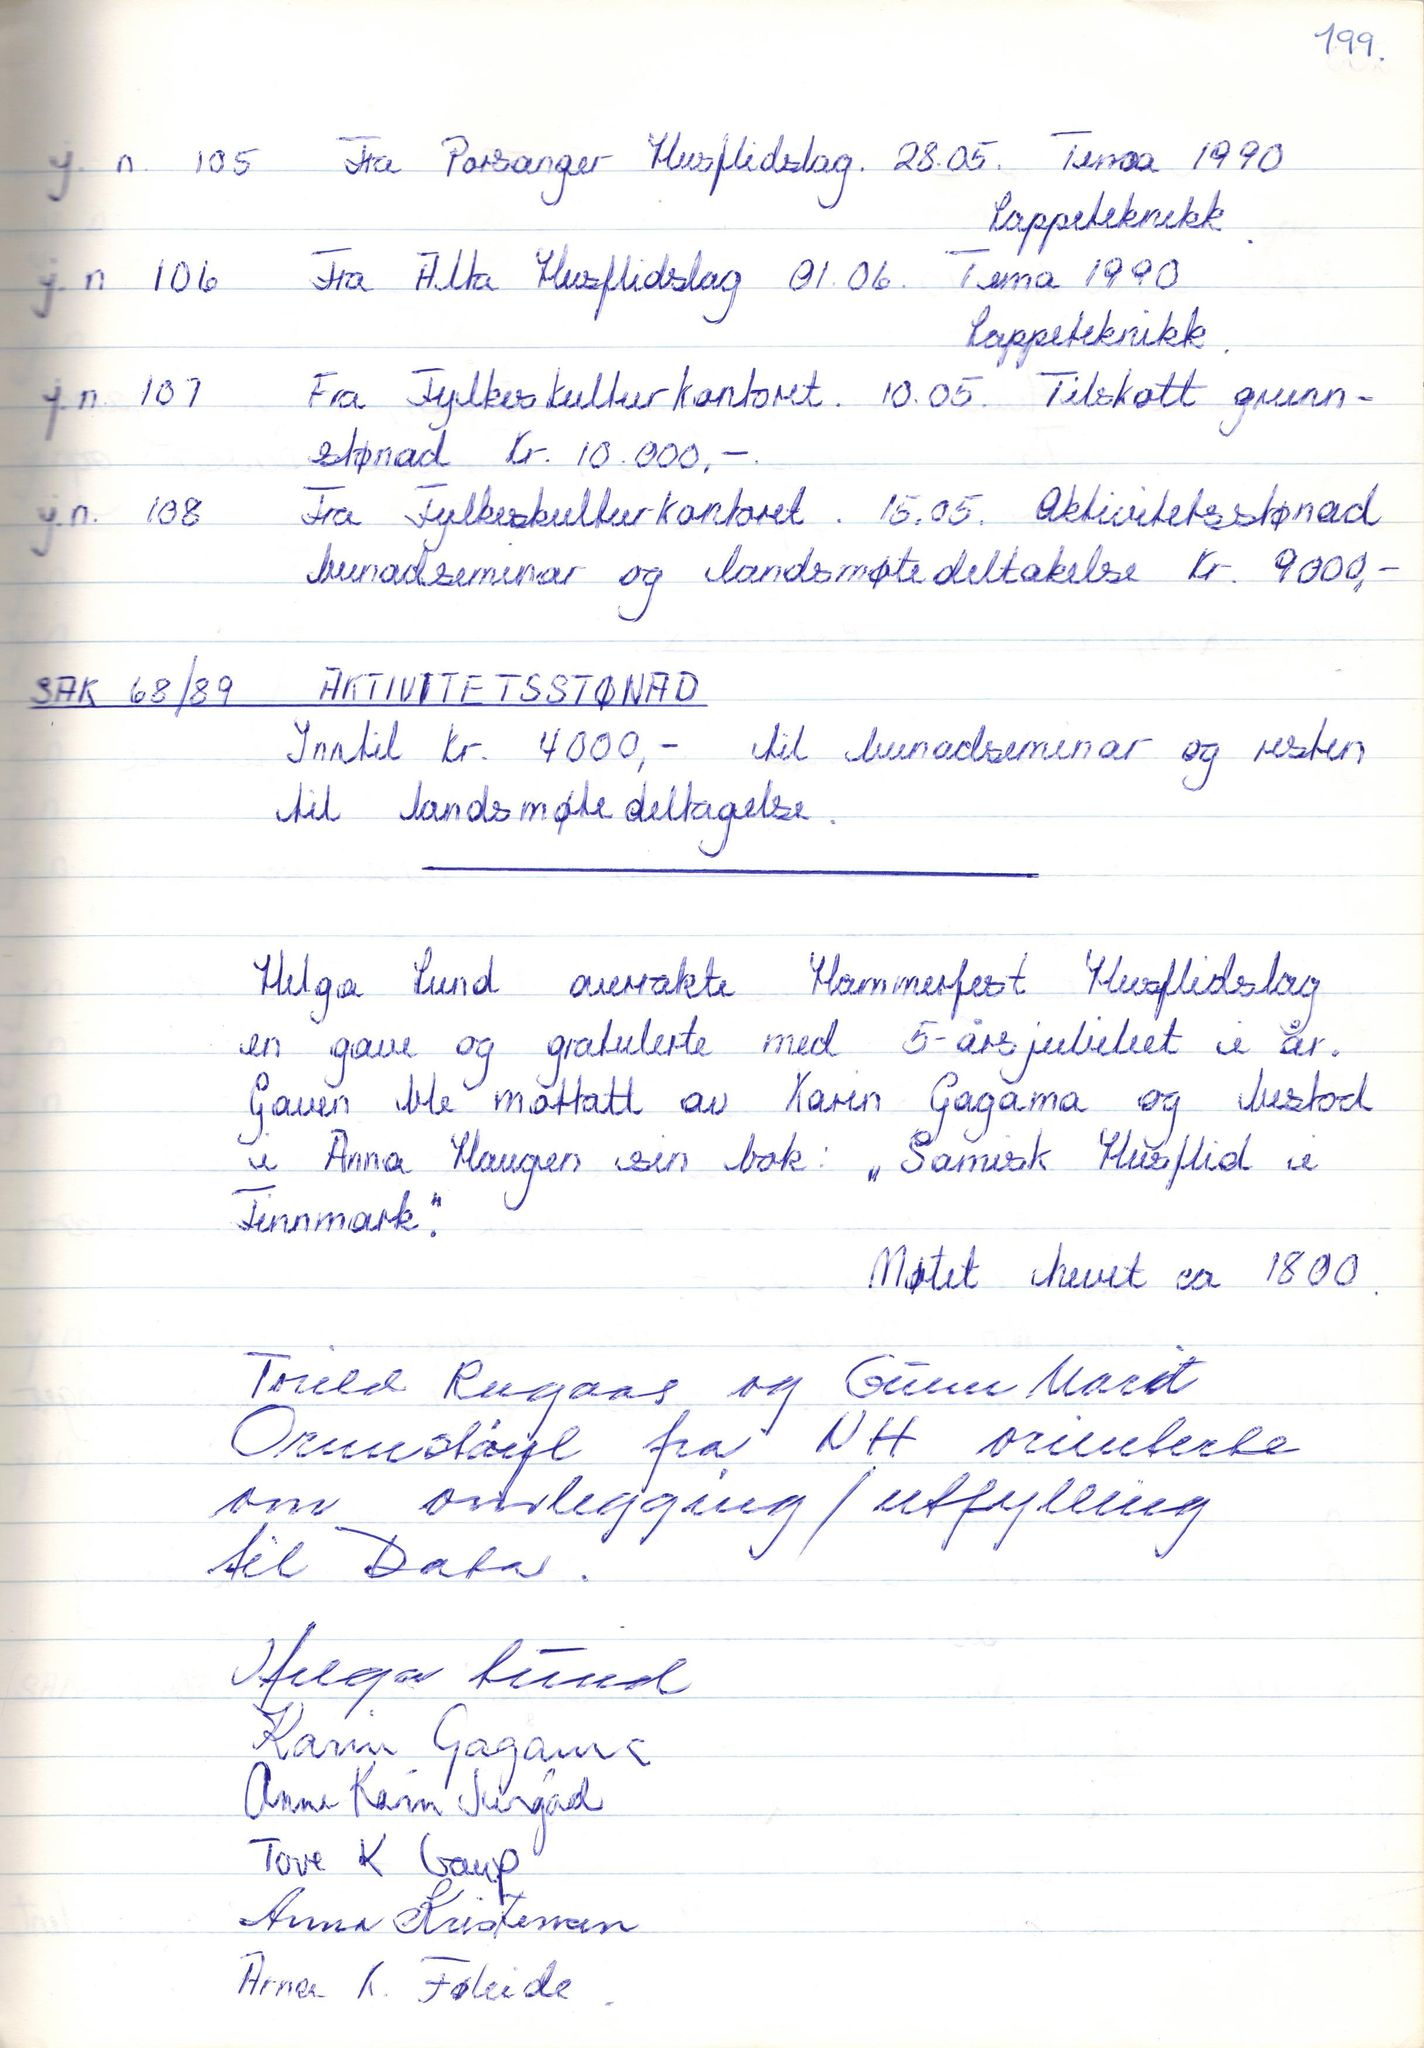 199.
j. n. 105 Fra Porsanger Husflidslag. 28.05. Tema 1990
Lappeteknikk.
j. n 106 Fra Alta Husflidslag 01.06. Tema 1990
Lappeteknikk.
j.n. 107 Fra Fylkeskulturkontoret. 10.05. Tilskott grunn-
stønad Kr. 10.000,-.
j.n. 108 Fra Fylkeskulturkontoret. 15.05. Aktivitetsstønad
bunadseminar og landsmøtedeltakelse Kr. 9000,-
SAK 68/89 AKTIVITETSSTØNAD
Inntil Kr. 4000,- til bunadseminar og resten
til landsmøtedeltagelse.
Helga Lund overrakte Hammerfest Husflidslag
en gave og gratulerte med 5-årsjubileet i år.
Gaven ble mottatt av Karin Gagama og bestod
i Anna Haugen sin bok: „Samisk Husflid i
Finnmark".
Møtet hevet ca 1800.
Torild Rugaas og Gunn Marit
fra NH orienterte
om omlegging/utfylling
til Data.
Helga Lund
Karin Gagama
Anne Karin
Tove K Gaup
Anna Kristensen
Arna K. Føleide.